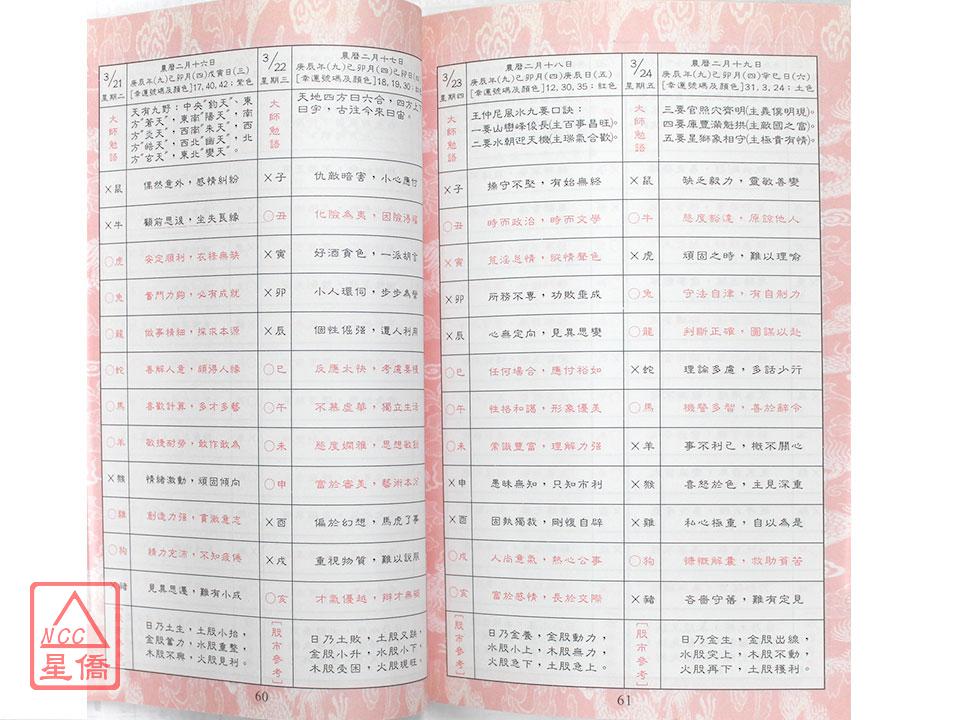 3/21
星期二
農曆二月十六日
庚辰年(九)己卯月(四)戊寅日(三)
[幸運號碼及顏色]17, 40, 42：紫色
大師勉語
天有九野：中央"鈞天"、東
方"蒼天"，東南"陽天"，南
方"炎天"，西南"朱天"，西
方"皓天"，西北"幽天"，北
方"玄天"，東北"變天"。
×鼠 偶然意外，感情糾紛
×牛 顧前思後，坐失良緣
○虎 安定順利，衣祿無缺
○兔 奮鬥力夠，必有成就
○龍 做事精細，探求本源
○蛇 善解人意，頗得人緣
○馬 喜歡計算，多才多藝
○羊 敏捷耐勞，敢作敢為
×猴 情緒激動，頑固傾向
○雞 創造力強，貫澈意志
○狗 精力充沛，不知疲倦
豬 見異思遷，難有小成
日乃土生，土股小抬，
金股蓄力，水股重整，
木股不興，火股見利。
3/22
星期三
農曆二月十七日
庚辰年(九)己卯月(四)己卯日
[幸運號碼及顏色]18, 19, 30：紅
大師勉語
天地四方曰六合，四方上下
曰宇，古注今來曰宙。
×子 仇敵暗害，小心應付
○丑 化險為夷，因險得福
×寅 好酒貪色，一派胡言
×卯 小人環伺，步步為營
×辰 個性倔強，遭人利用
○巳 反應太快，考慮要
○午 不慕虛華，獨立生活
○未 態度嫻雅，思想敏
○申 富於審美，藝術本
×酉 偏於幻想，馬虎了事
×戌 重視物質，難以說服
○亥 才氣優越，辯才無
[股市參考]
日乃土敗，土股又跌，
金股小升，水股小下，
木股受困，火股現旺。
60
3/23
星期四
農曆二月十八日
庚辰年(九)己卯月(四)庚辰日(五)
[幸運號碼及顏色]12, 30, 35：紅色
大師勉語
王仲尼風水九要口訣：
一要山巒峰俊長(主百事昌旺)。
二要水朝迎天機(主瑞氣合歡)。
×子 操守不堅，有始無終
○丑 時而政治，時而文學
×寅 荒淫怠情，縱情聲色
×卯 所務不專，功敗垂成
×辰 心無定向，見異思變
○巳 任何場合，應付裕如
○午 性格和藹，形象優美
○未 常識豐富，理解力強
×申 愚昧無知，只知市利
×酉 固執獨裁，剛愎自辟
○戌 人尚意氣，熱心公事
○亥 富於感情，長於交際
[股市參考]
日乃金養，金股動力，
水股小上，木股無力，
火股急下，土股急上。
3/24
星期五
農曆二月十九日
庚辰年(九)己卯月(四)辛巳日(六)
[幸運號碼及顏色]31, 3, 24：土色
大師勉語
三要官照六齊明(主義僕明現)。
四要庫豐滿魁拱(主敵國之富)。
五要星獅象相守(主極貴有情)。
×鼠 缺乏毅力，靈敏善變
○牛 態度豁達，原諒他人
×虎 頑固之時，難以理喻
○兔 守法自律，有自制力
○龍 判斷正確，圖謀以赴
×蛇 理論多慮，多話少行
○馬 機警多智，善於辭令
×羊 事不利己，概不關心
×猴 喜怒於色，主見深重
×雞 私心極重，自以為是
○狗 慷慨解囊，救助貧苦
×豬 吝嗇守舊，難有定見
[股市參考]
日乃金生，金股出線，
水股突上，木股不動，
火股再下，土股獲利。
61
NCC
星僑